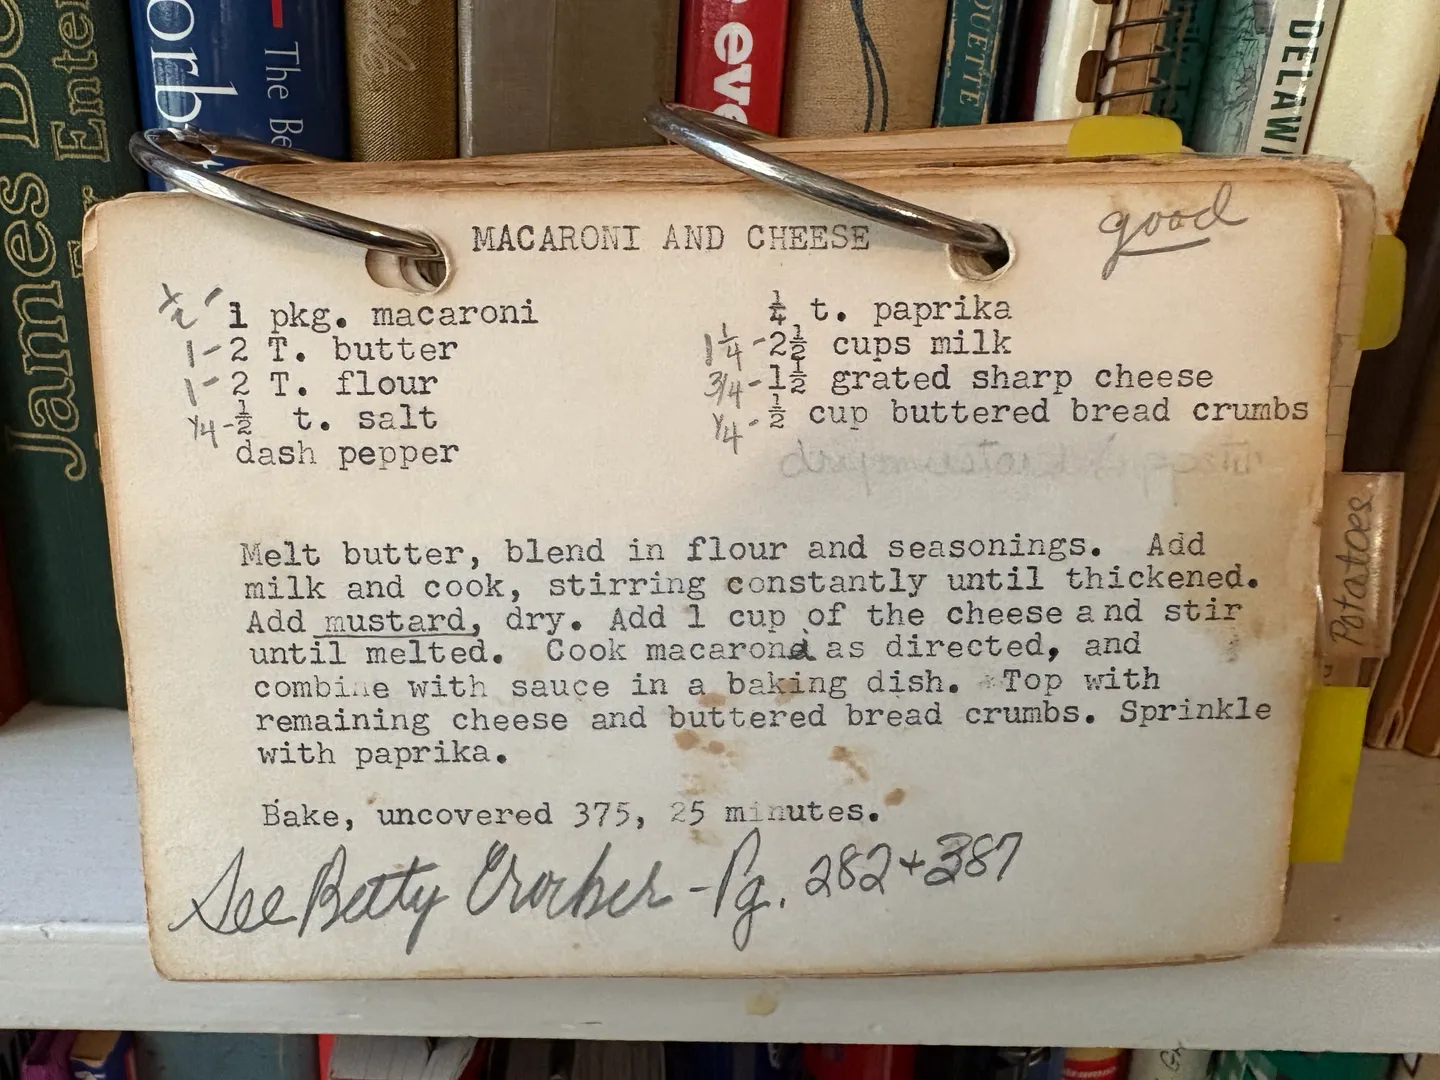 James
Enter
orb
The Be
eve
QUETTE
DELAW
MACARONI AND CHEESE
good
1/2 - 1 pkg. macaroni
1 - 2 T. butter
1 - 2 T. flour
1/4 - 1/2 t. salt
dash pepper
1/4 t. paprika
1 1/4 - 2 1/2 cups milk
3/4 - 1 1/2 grated sharp cheese
1/4 - 1/2 cup buttered bread crumbs
Melt butter, blend in flour and seasonings. Add
milk and cook, stirring constantly until thickened.
Add mustard, dry. Add 1 cup of the cheese and stir
until melted. Cook macaroni as directed, and
combine with sauce in a baking dish. Top with
remaining cheese and buttered bread crumbs. Sprinkle
with paprika.
Bake, uncovered 375, 25 minutes.
See Betty Crocker - Pg. 282 + 387
Potatoes